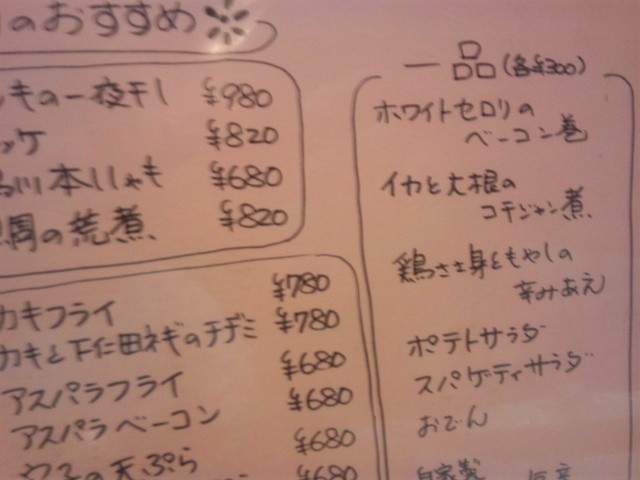 のおすすめ
キの一夜干し ¥980
ッケ ¥820
川本ししゃも ¥680
鯛の荒煮 ¥820
¥780
カキフライ ¥780
カキと下仁田ネギのチヂミ ¥680
アスパラフライ ¥680
アスパラベーコン ¥680
の天ぷら ¥680
一品(各¥300)
ホワイトセロリの
ベーコン巻
イカと大根の
コチジャン煮
鶏ささ身ともやしの
辛みあえ
ポテトサラダ
スパゲティサラダ
おでん
自家製